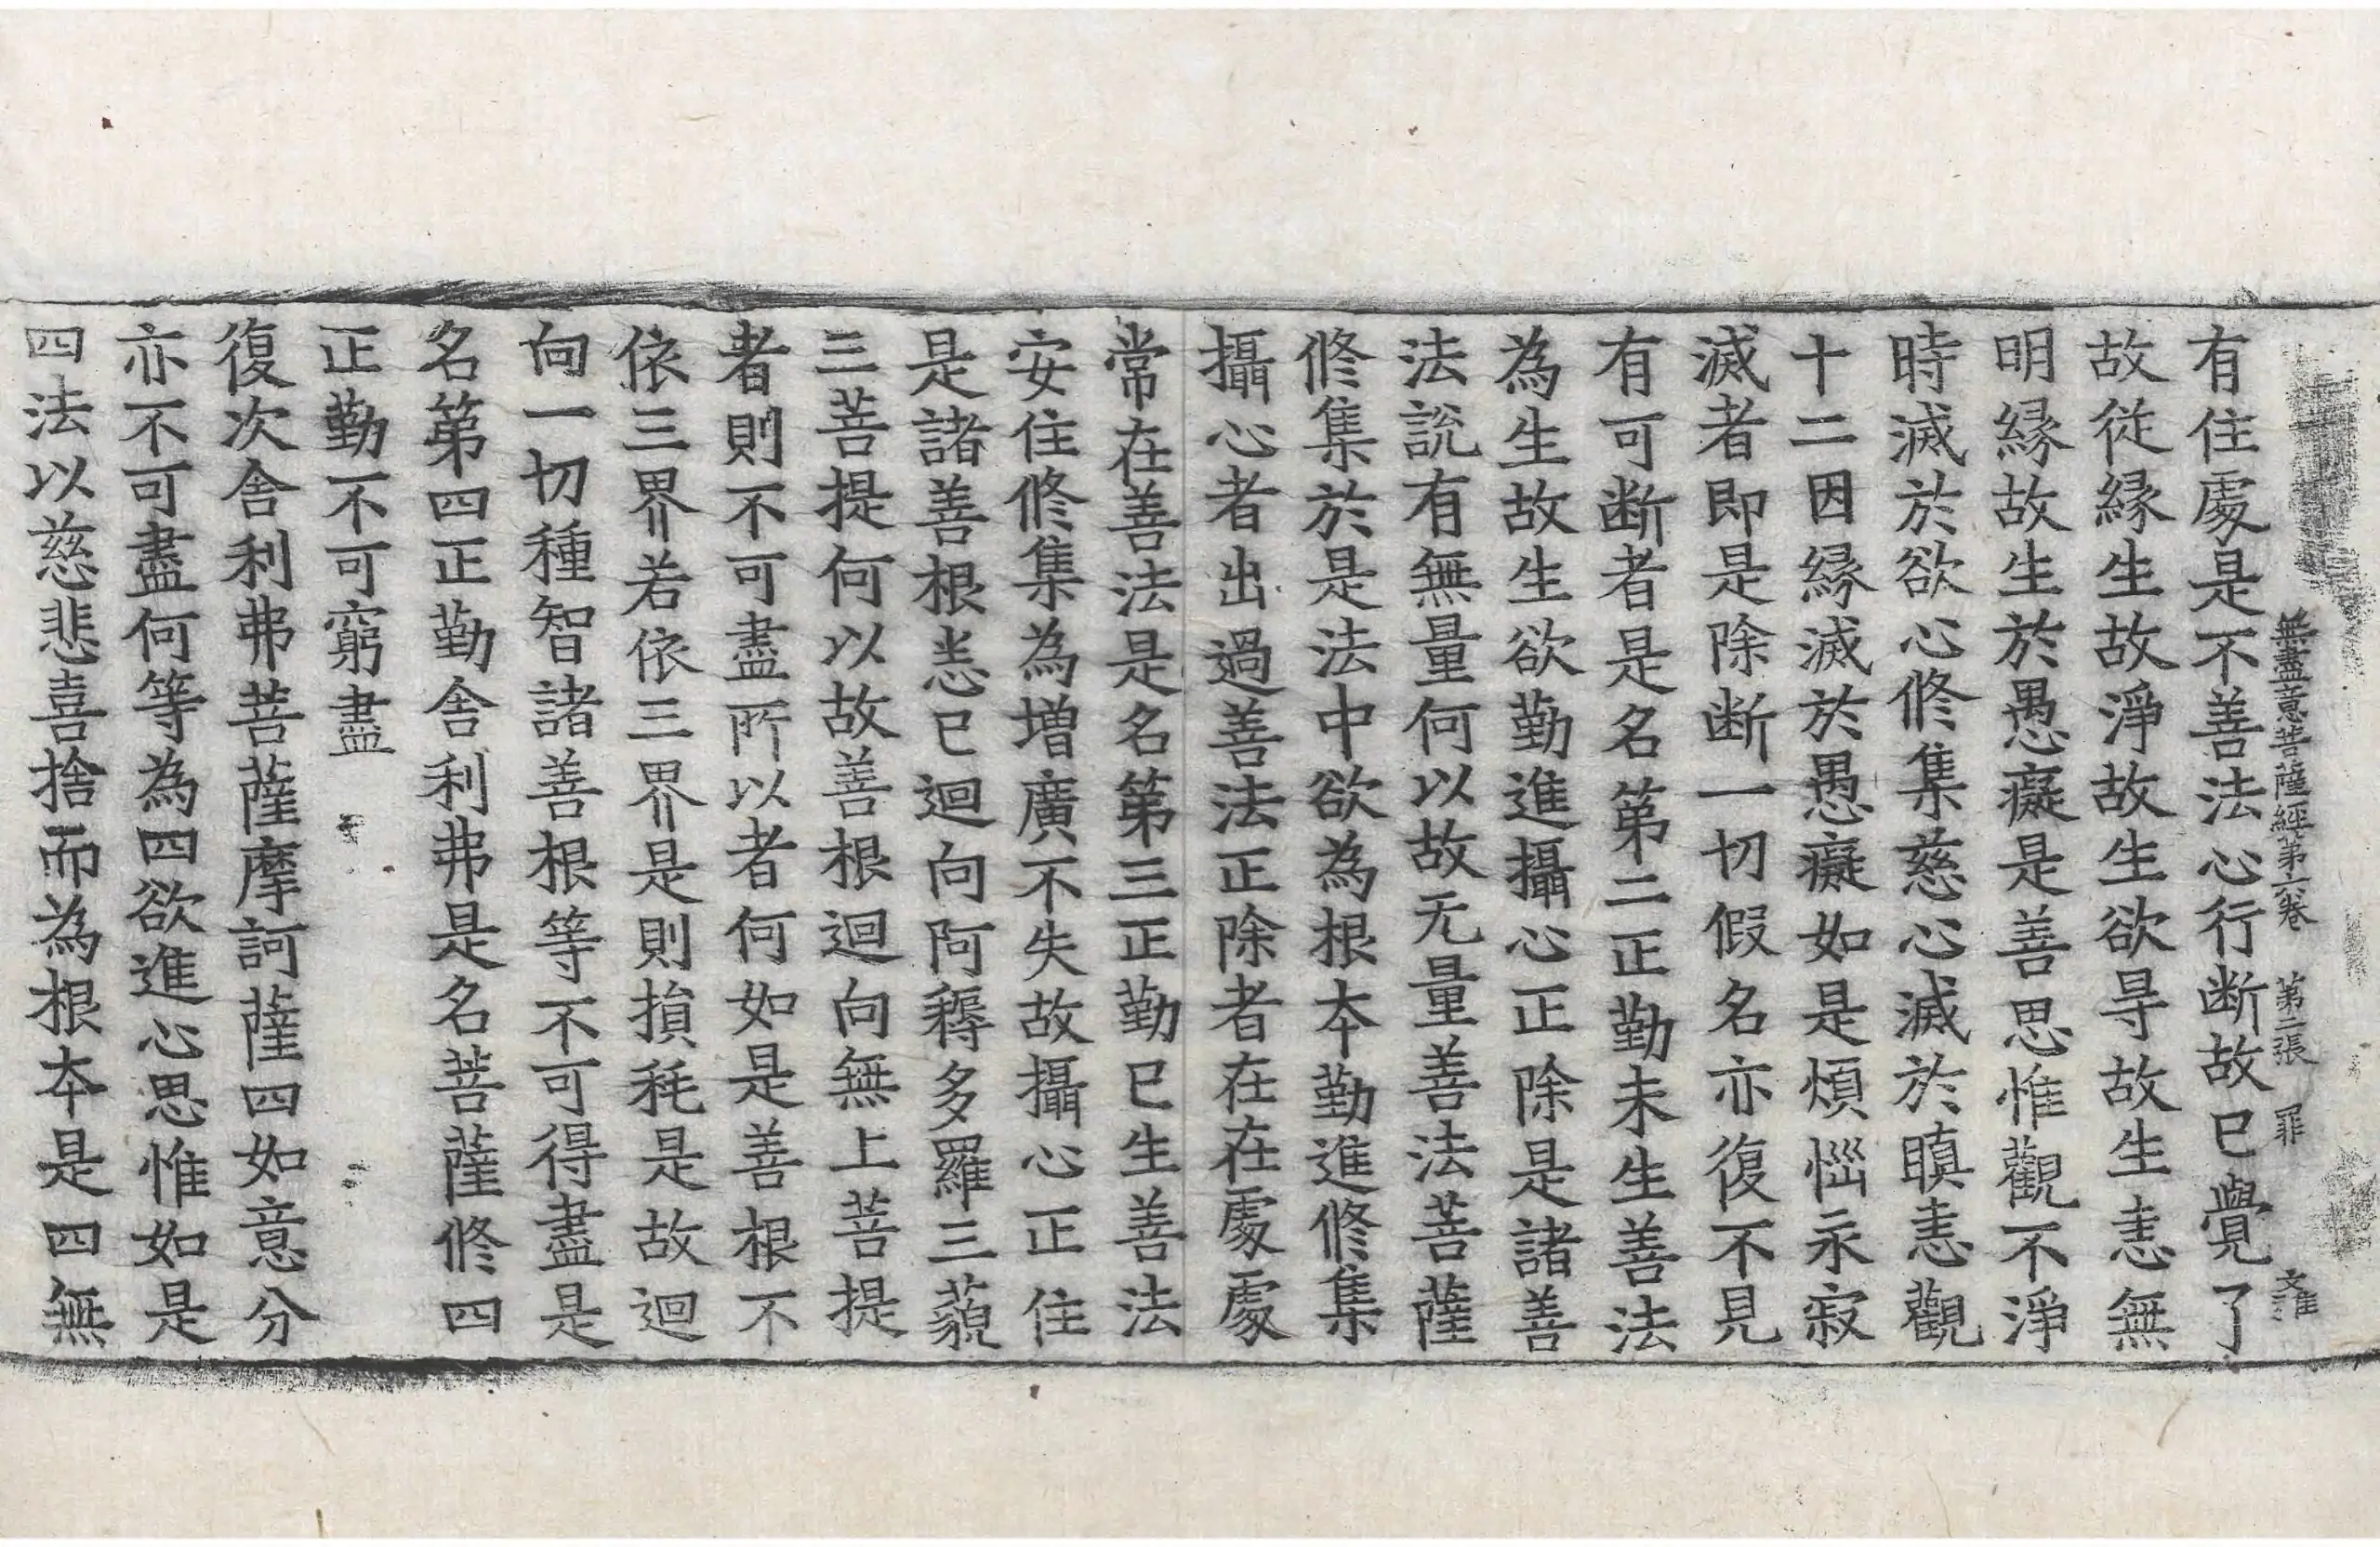 無盡意菩薩經第六卷　第二張　罪　文惟
有住處是不善法心行断故已覺了
故從縁生故淨故生欲㝵故生恚無
明縁故生於愚癡是善思惟觀不淨
時滅於欲心修集慈心滅於瞋恚觀
十二因縁滅於愚癡如是煩惱永寂
滅者即是除断一切假名亦復不見
有可断者是名第二正勤未生善法
為生故生欲勤進攝心正除是諸善
法說有無量何以故无量善法菩薩
修集於是法中欲為根本勤進修集
攝心者出過善法正除者在在處處
常在善法是名第三正勤已生善法
安住修集為增廣不失故攝心正住
是諸善根悉已迴向阿耨多羅三藐
三菩提何以故善根迴向無上菩提
者則不可盡所以者何如是善根不
依三界若依三界是則損耗是故迴
向一切種智諸善根等不可得盡是
名第四正勤舍利弗是名菩薩修四
正勤不可窮盡
復次舍利弗菩薩摩訶薩四如意分
亦不可盡何等為四欲進心思惟如是
四法以慈悲喜捨而為根本是四無